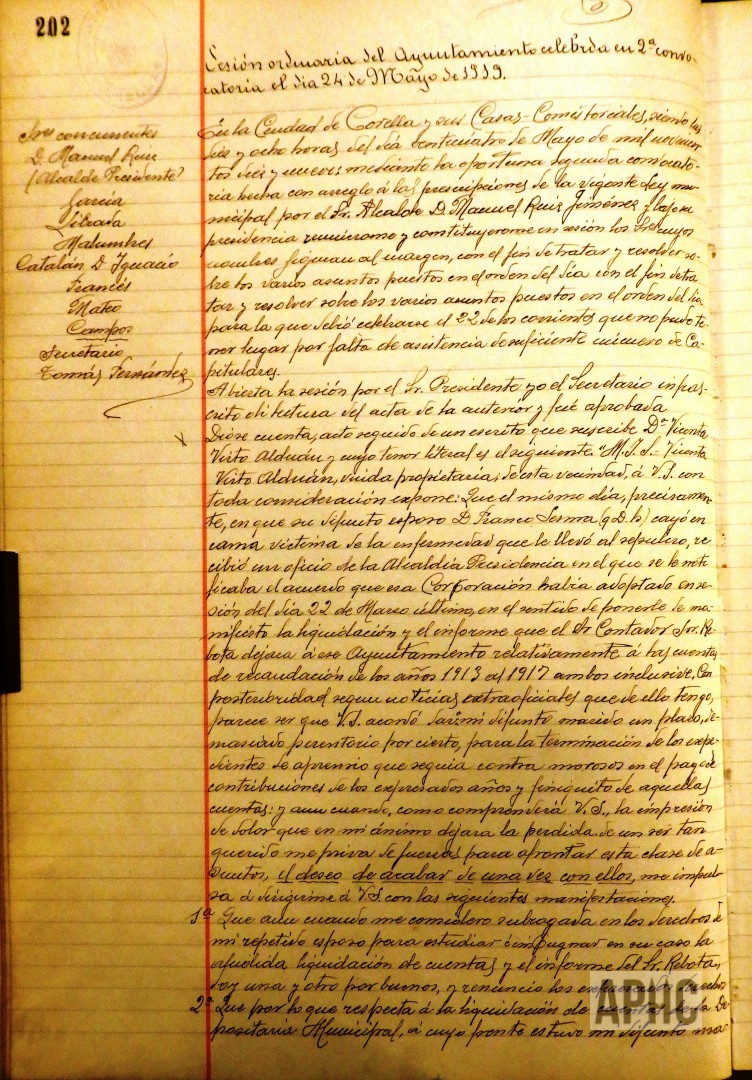 202
Sesión ordinaria del Ayuntamiento celebrda en 2ª convo-
catoria el dia 24 de Mayo de 1919.
Sres concurrentes
D. Manuel Ruiz
(Alcalde Presidente)
Garcia
Litrada
Malumbres
Catalán D Ignacio
Francés
Mateo
Campos
Secretario
Tomás Fernández
En la Ciudad de Corella y sus Casas-Comistoriales, siendo las
diez y ocho horas del dia veinticuatro de Mayo de mil novecien
tos diez y nueve; mediante la oportuna segunda convocato-
ria hecha con arreglo á las prescripciones de la vigente Ley mu-
nicipal por el Sr. Alcalde D. Manuel Ruiz Jiménez y bajo su
presidencia reunieronse y constituyeronse en sesión los Sres cuyos
nombres figuran al margen, con el fin de tratar y resolver so-
bre los varios asuntos puestos en el orden del dia con el fin de tra
tar y resolver sobre los varios asuntos puestos en el orden del dia
para la que debió celebrarse el 22 de los corrientes que no pudo te-
ner lugar por falta de asistencia de suficiente número de Ca-
pitulares.
Abierta la sesión por el Sr. Presidente yo el Secretario infras-
crito di lectura del acta de la anterior y fué aprobada
Diose cuenta, acto seguido de un escrito que suscribe Dª Vicenta
Virto Alduán y cuyo tenor literal es el siguiente "M.I.S.- Vicenta
Virto Alduán, viuda propietaria, de esta vecindad, á V.S. con
toda consideración expone: Que el mismo dia, precisamen-
te, en que su difunto esposo D. Franco Sesma (q.D.h) cayó en
cama victima de la enfermedad que le llevó al sepulcro, re
cibió un oficio de la Alcaldia Presidencia en el que se le noti
ficaba el acuerdo que esa Corporación habia adoptado en se-
sión del dia 22 de Marzo último, en el sentido de ponerle de ma-
nifiesto la liquidación y el informe que el Sr Contador Sor. Re-
bota dejara á ese Ayuntamiento relativamente á las cuentas
de recaudación de los años 1913 al 1917 ambos inclusive. Con
posteribridad segun noticias extraoficiales que de ello tengo,
parece ser que V.S. acordó dar á mi difunto marido un plazo, de-
masiado perentorio por cierto, para la terminación de los expe-
dientes de apremio que seguia contra morosos en el pago de
contribuciones de los expresados años y finiquito de aquellas
cuentas: y aun cuando, como comprenderá V.S., la impresión
de dolor que en mi ánimo dejara la perdida de un ser tan
querido me priva de fuerzas para afrontar esta clase de a-
suntos, el deseo de acabar de una vez con ellos, me impul-
sa á dirigirme á V.S. con las siguientes manifestaciones.
1ª Que aun cuando me considero subrogada en los derechos de
mi repetido esposo para estudiar é impugnar en su caso la
aludida liquidación de cuentas y el informe del Sr. Rebota,
doy una y otro por buenos, y renuncio los expresados derechos
2ª Que por lo que respecta á la liquidación de cuentas de la De
positaria Municipal, á cuyo frente estuvo mi difunto ma-
APHC